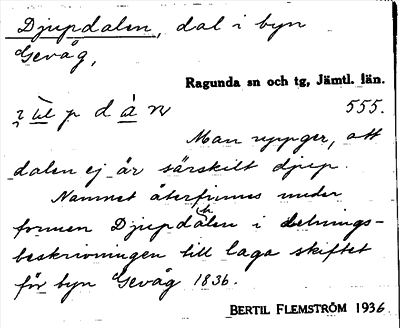 Djupdalen, dal i byn
Gevåg,
Ragunda sn och tg, Jämtl. län.
p d à n 555.
Man uppger, att
dalen ej är särskilt djup.
Namnet återfinnes under
formen Djupdalen i delnings-
beskrivningen till laga skiftet
för byn Gevåg 1836.
BERTIL FLEMSTRÖM 1936